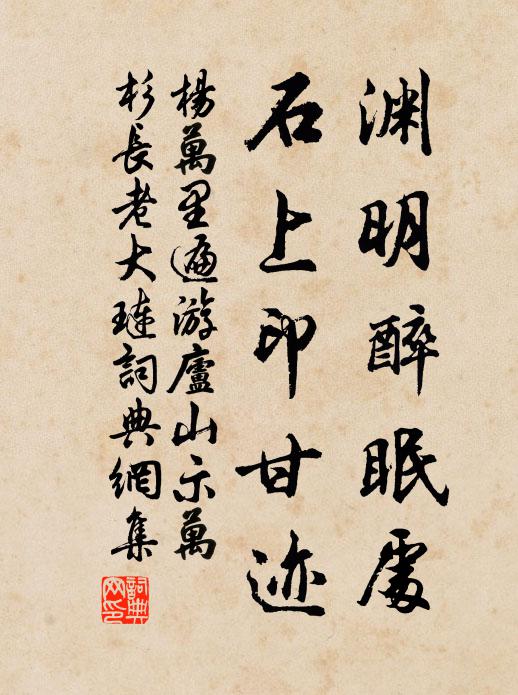 渊明醉眠處
石上印甘迹
楊萬里遍游廬山示萬
杉長老大璉詞典網集
詞典網印